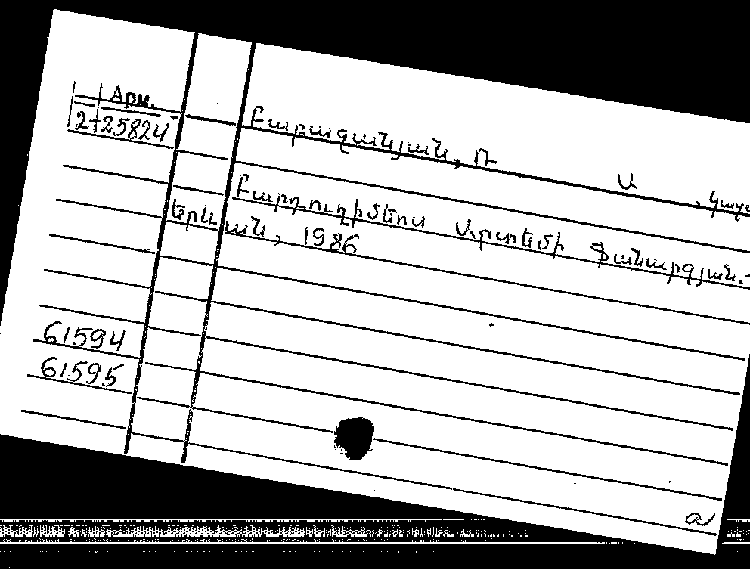 Арм.
2+25824
Բարազանյան, Ռ Ա , կազմ
Բարդուղիմեոս Արտեմի Ֆանարջյան.-
Երևան, 1986
61594
61595